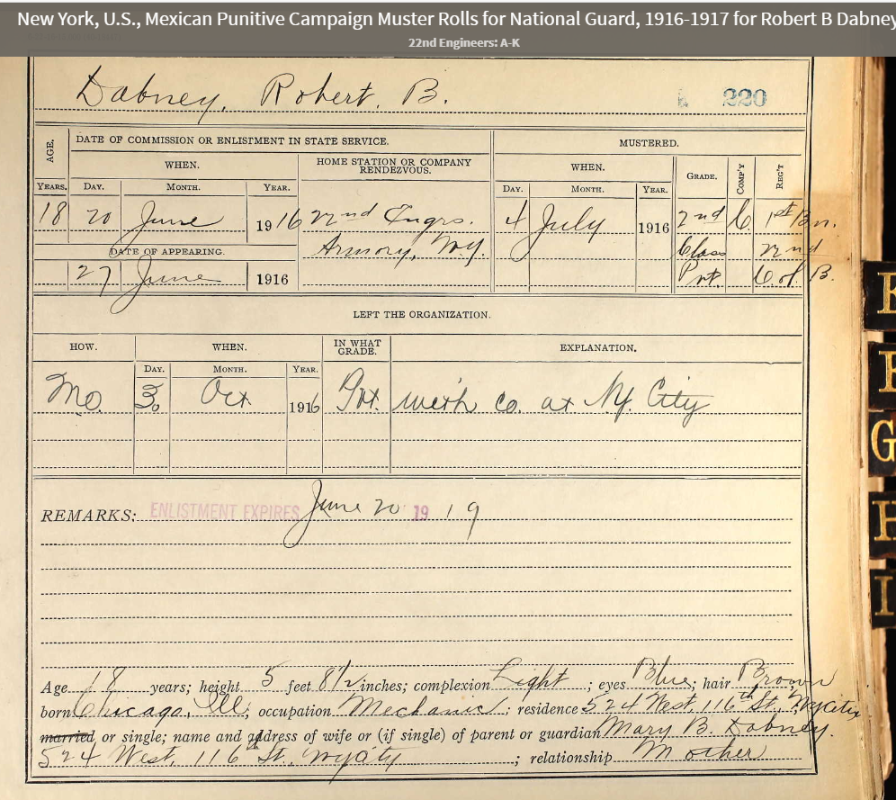 New York, U.S., Mexican Punitive Campaign Muster Rolls for National Guard, 1916-1917 for Robert B Dabney
22nd Engineers: A-K
Dabney, Robert. B.
220
AGE.
DATE OF COMMISSION OR ENLISTMENT IN STATE SERVICE.
MUSTERED.
WHEN.
HOME STATION OR COMPANY RENDEZVOUS.
WHEN.
GRADE.
COMP'Y
REG'T
YEARS. DAY. MONTH. YEAR.
DAY. MONTH. YEAR.
18 20 June 1916 22nd Engrs. 4 July 1916 2nd C 1st Bn.
DATE OF APPEARING. Armory, N.Y. Class 22nd
27 June 1916 Pvt. C of B.
LEFT THE ORGANIZATION.
HOW. WHEN. IN WHAT GRADE. EXPLANATION.
DAY. MONTH. YEAR.
MO. Oct. 1916 Pvt. with co. at NY. City
REMARKS: ENLISTMENT EXPIRES June 20 19 19
Age 18 years; height 5 feet 8 1/2 inches; complexion Light; eyes Blue; hair Brown
born Chicago, Ill; occupation Mechanic; residence 524 West, 116th St, NyCity
married or single; name and address of wife or (if single) of parent or guardian Mary B. Dabney.
524 West, 116th St, NyCity; relationship Mother
E
F
G
H
I